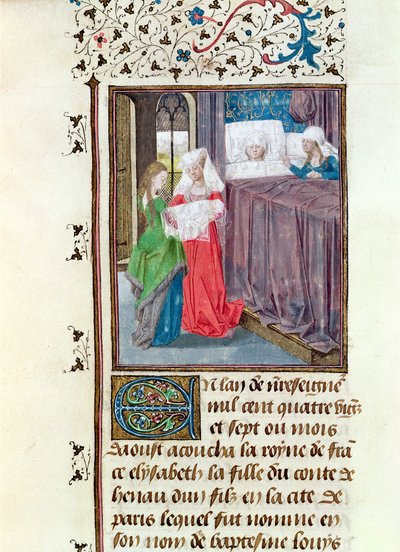 En lan de n͞re seigne͞
mil cent quatre vigz
et sept ou mois
daoust acoucha la royne de fra͞
ce elysabeth la fille du conte de
henau dun filz en la cite de
paris lequel fut nomme en
son nom de baptesme louys